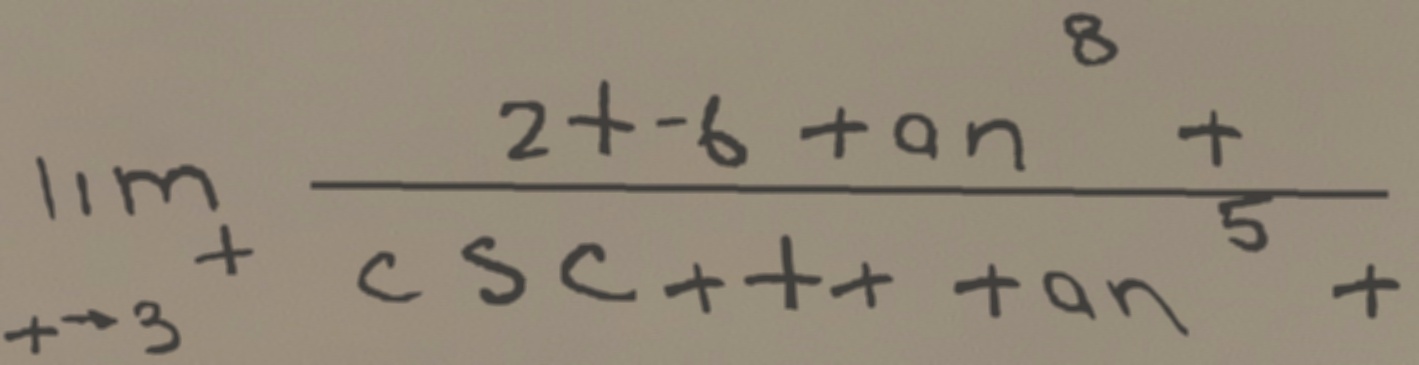 \lim_{t \to 3^+} \frac{2t-6\tan^8 t}{\csc t + t \tan^5 t}